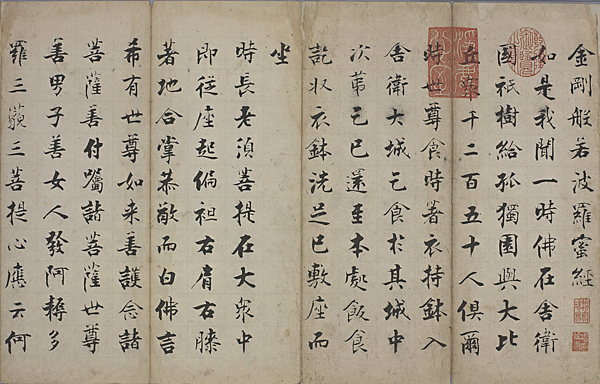 金剛般若波羅蜜經
如是我聞一時佛在舍衛
國祇樹給孤獨園與大比
丘眾千二百五十人俱爾
時世尊食時著衣持鉢入
舍衛大城乞食於其城中
次第乞已還至本處飯食
訖收衣鉢洗足已敷座而
坐
時長老須菩提在大眾中
即從座起偏袒右肩右膝
著地合掌恭敬而白佛言
希有世尊如来善護念諸
菩薩善付囑諸菩薩世尊
善男子善女人發阿耨多
羅三藐三菩提心應云何